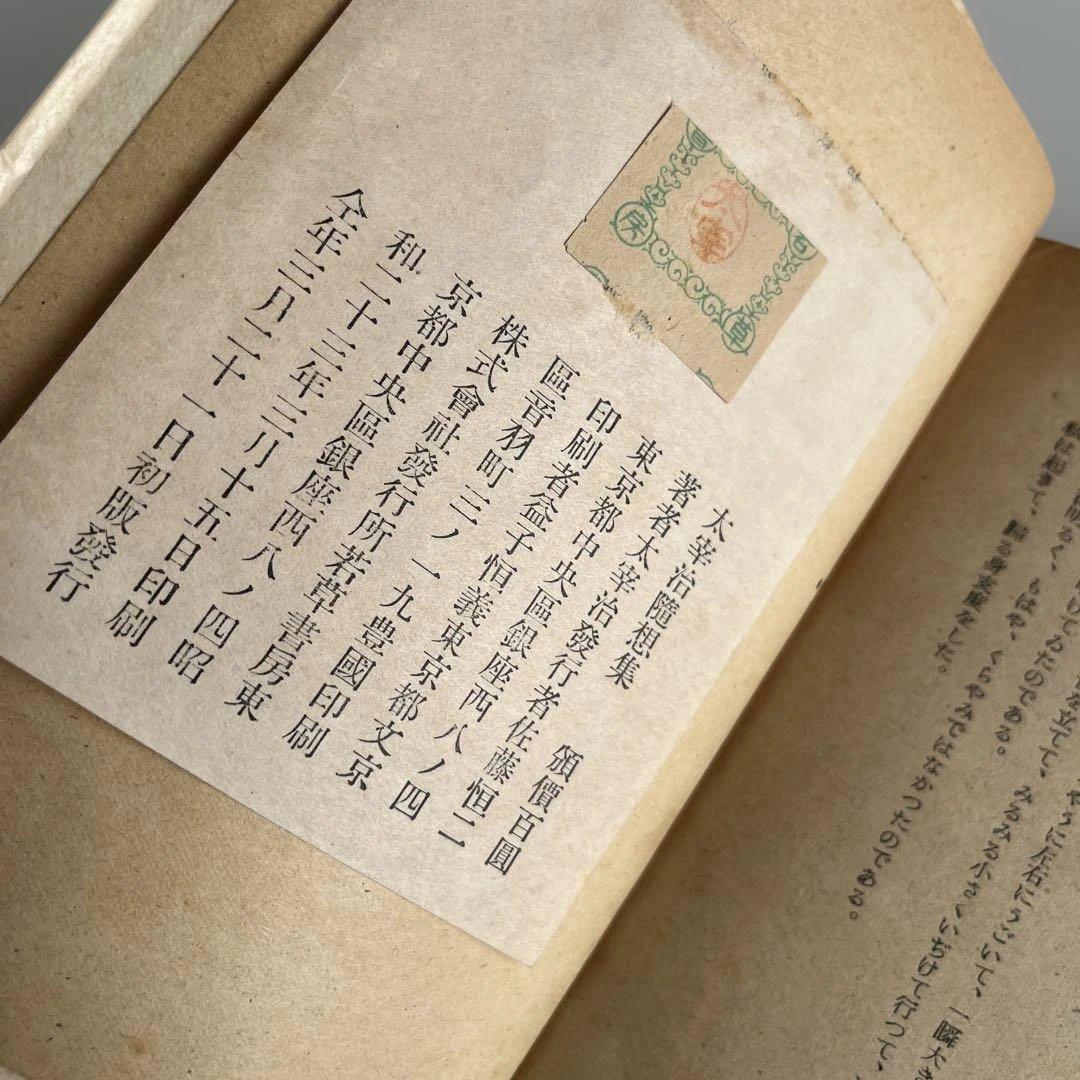 太宰治隨想集　頒價百圓
著者太宰治發行者佐藤恒二
東京都中央區銀座西八ノ四
印刷者益子恒義東京都文京
區音羽町三ノ一九豊國印刷
株式會社發行所若草書房東
京都中央區銀座西八ノ四昭
和二十三年三月十五日印刷
仝年三月二十一日初版發行
草
房
太宰
やうに左右にうごいて、一瞬大き
を立てて、みるみる小さくいぢけて行つて、
けてゐたのである。
明るく、もはや、くらやみではなかつたのである。
私は起きて、歸る身支度をした。